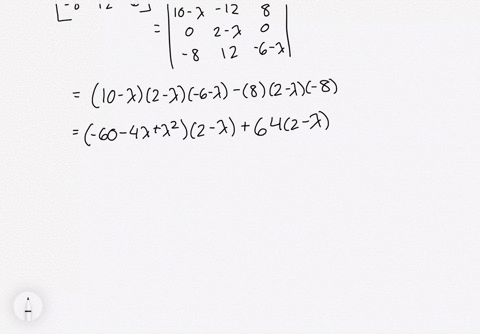 10-λ -12 8
= 0 2-λ 0
-8 12 -6-λ
= (10-λ)(2-λ)(-6-λ)-(8)(2-λ)(-8)
= (-60-4λ+λ²)(2-λ)+64(2-λ)